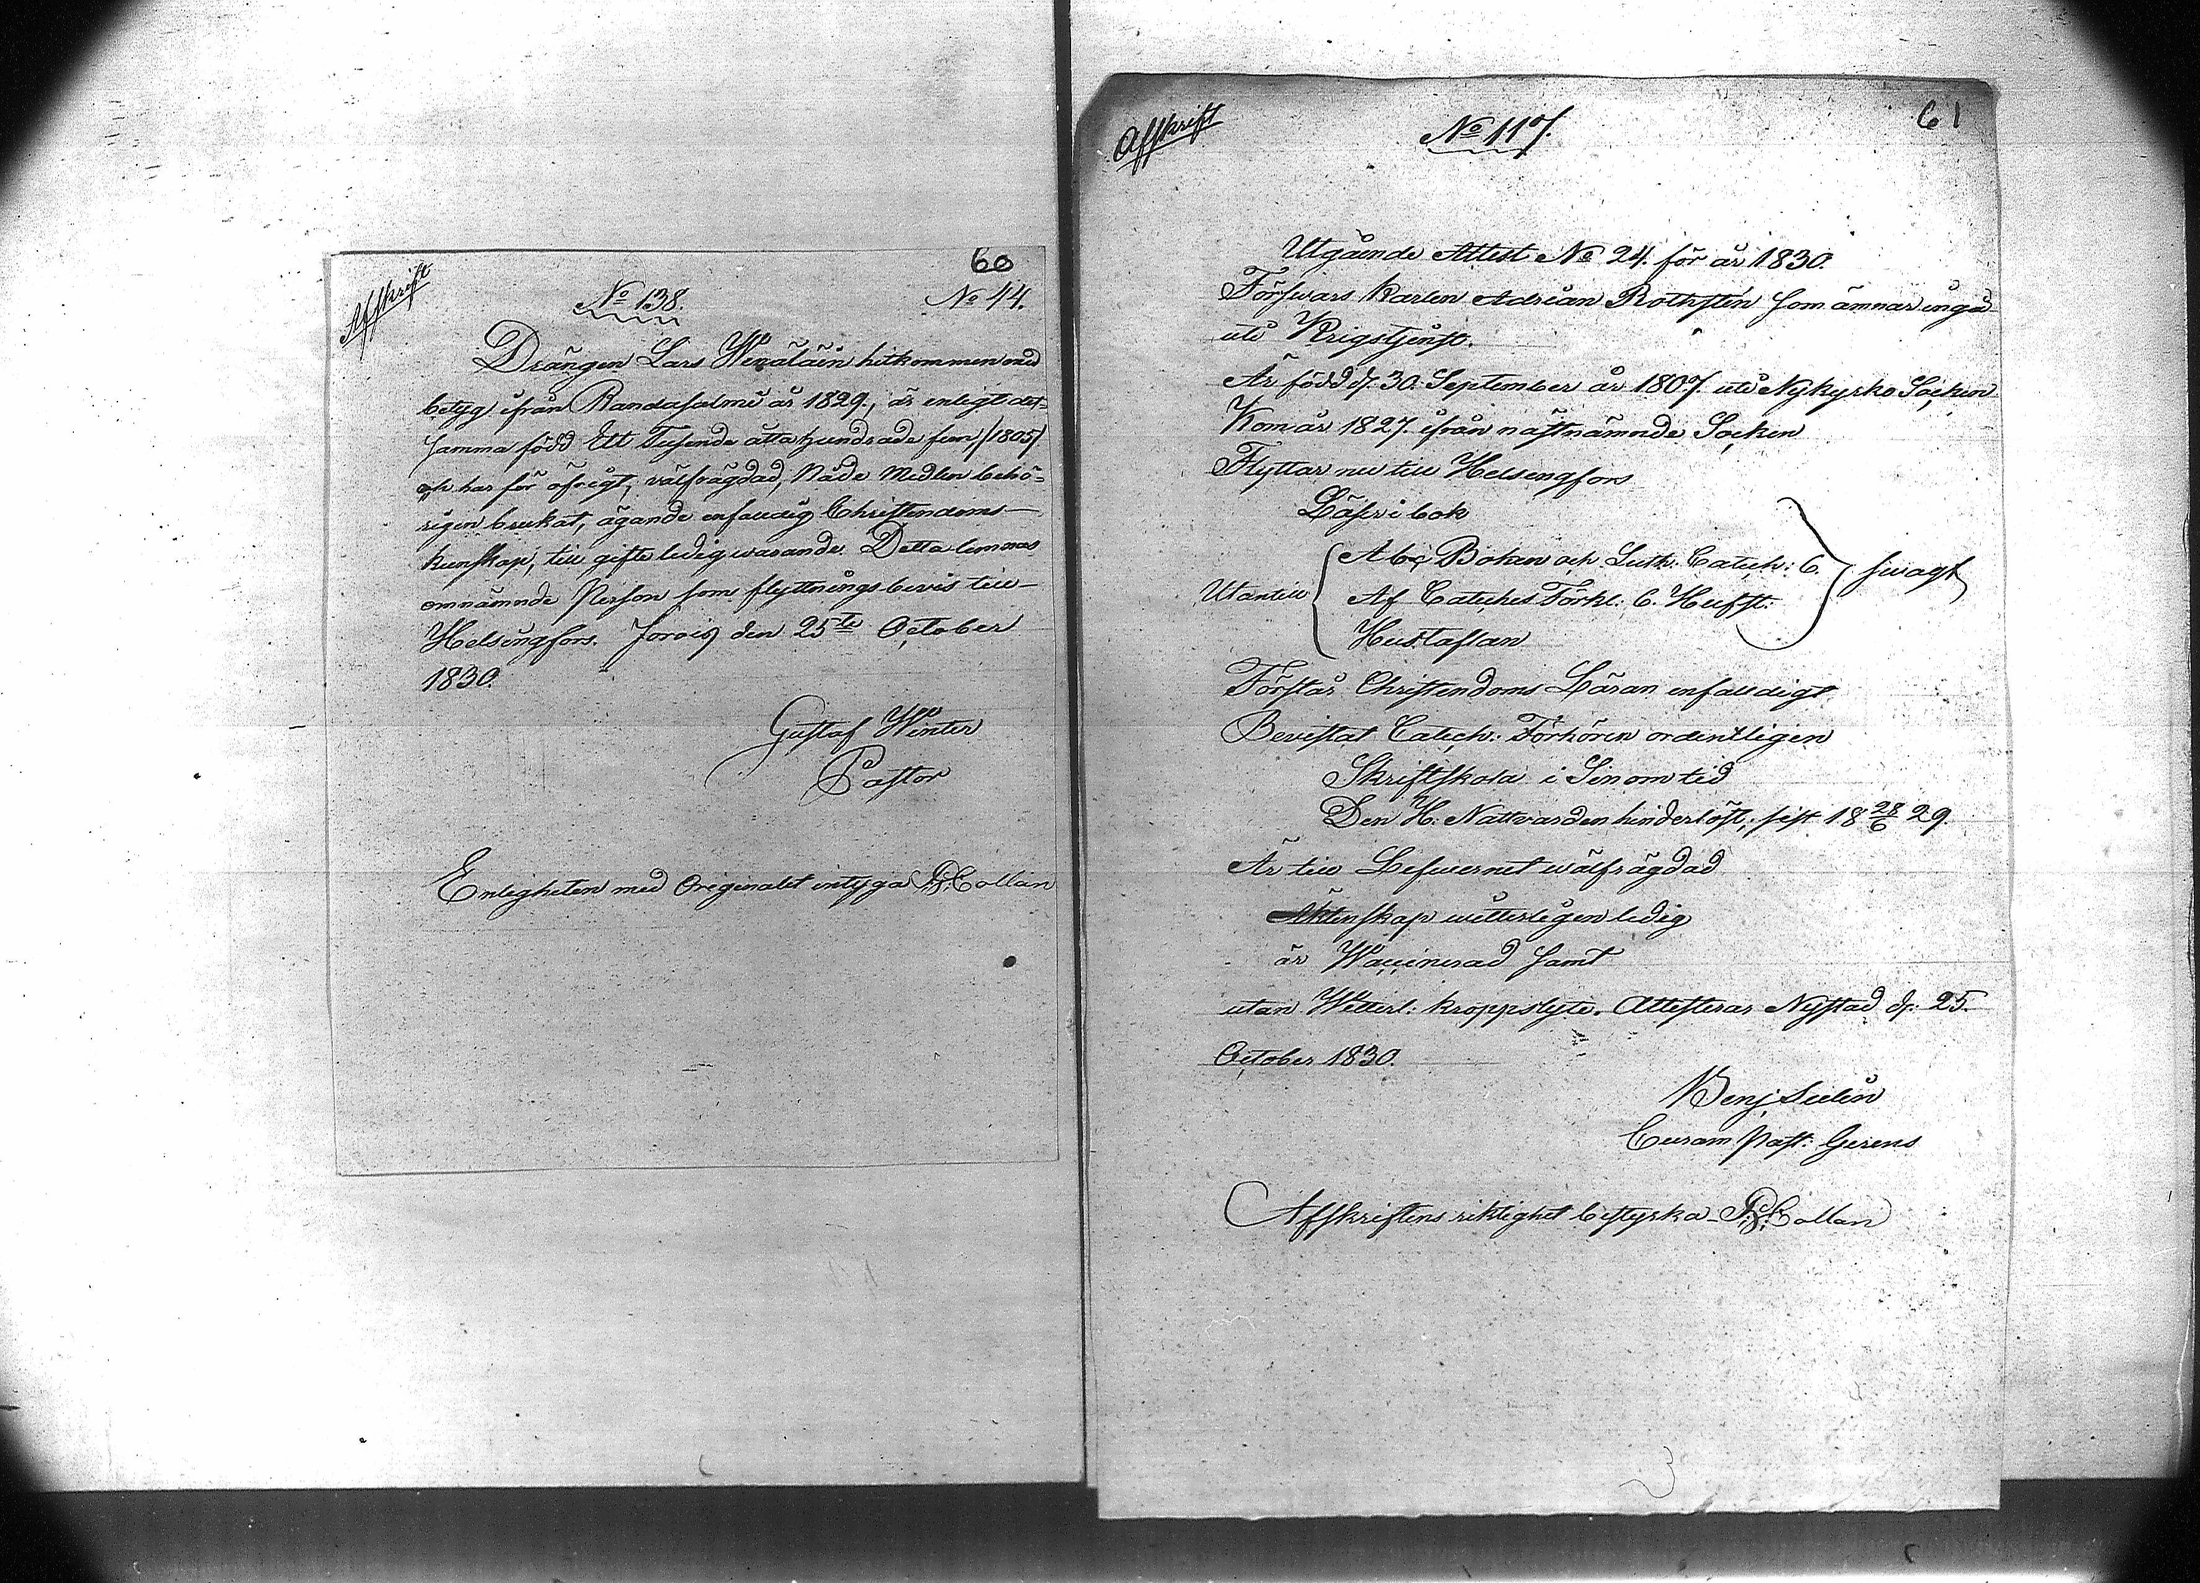 60
Afskrift
No 138.
No 44.
Drängen Lars Wenäläin hitkommen med
betyg ifrån Randasalmi år 1829, är enligt det-
samma född Ett Tusende åtta hundrade fem /1805/
och har för öfrigt, välfrägdad, Nåde Medlen behö-
rigen brukat, ägande enfaldig Christendoms-
kunskap, till gifte ledig warande. Detta lemnas
omnämnde Person som flyttningsbevis till
Helsingfors. Jorois den 25te October
1830.
Gustaf Winter
Pastor
Enligheten med Originalet intyga Collan
61
Afskrift
No 117.
Utgående Attest No 24. för år 1830.
Förswars Karlen Adrian Rothstén som ämnar ingå
uti Krigstjenst.
Är född d. 30. September år 1807. uti Nykyrko Socken
Kom år 1827. ifrån näst nämnde Socken
Flyttar nu till Helsingfors
Läser i bok
Utantill
Abc Boken och Luth. Catech: 6.
Af Catches Förkl: 6. Hufst:
Hustaflan
swagt
Förstår Christendoms Läran enfaldigt
Bevistat Catech: Förhören ordentligen
Skriftskola i Sinom tid
Den H: Nattvarden hinderlöst, sist 18 28/6 29.
Är till Lefwernet wälfrägdad
Äktenskap witterligen ledig
är Waccinerad samt
utan Wetterl: kroppslyte. Attesteras Nystad d. 25.
October 1830.
Benj Selin
Curam Past: Gerens
Afskriftens riktighet bestyrka Collan